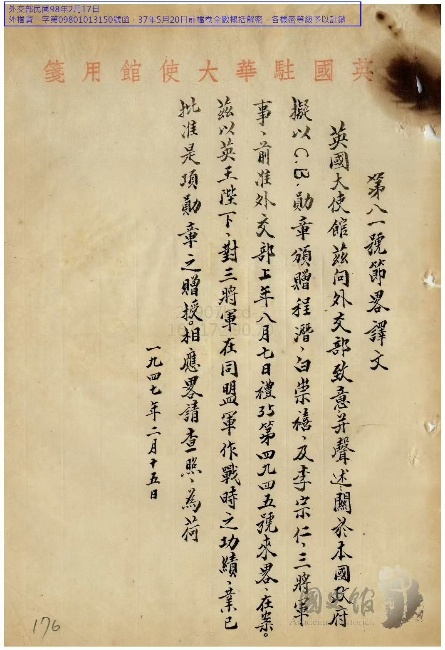 外交部民國98年2月17日
外檔資一字第09801013150號函，37年5月20日前檔卷全數概括解密，各樣密等級予以註銷
英國駐華大使館用箋
第八一號節畧譯文
英國大使館茲向外交部致意并聲述關於本國政府
擬以C.B.勛章頒贈程潛、白崇禧、及李宗仁、三將軍
事、前准外交部上年八月七日禮35第四九四五號來畧、在案。
茲以英王陛下、對三將軍在同盟軍作戰時之功績、業已
批准是項勛章之贈授。相應畧請查照、為荷
一九四七年二月十五日
176
國史館
Academia Historica